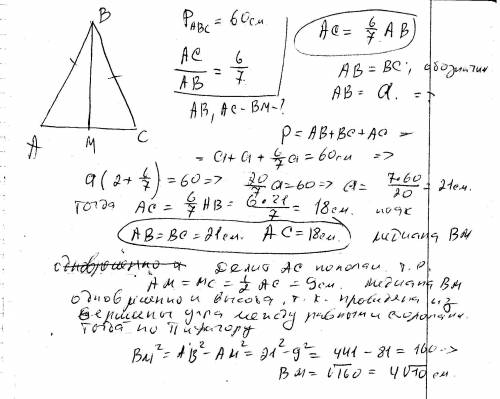 B
A
M
C
P_ABC = 60см.
AC/AB = 6/7
AB, AC - BM - ?
AC = 6/7 AB
AB = BC; обозначим
AB = a. =>
P = AB + BC + AC =
= a + a + 6/7 a = 60см =>
a(2 + 6/7) = 60 => 20/7 a = 60 => a = 7•60/20 = 21см.
тогда AC = 6/7 AB = 6•21/7 = 18см.
AB = BC = 21см. AC = 18см. медиана BM
делит AC пополам. т.е.
AM = MC = 1/2 AC = 9см. медиана BM
одновременно и высота, т.к. проведена из
вершины угла между равными сторонами.
Тогда по Пифагору
BM² = AB² - AM² = 21² - 9² = 441 - 81 = 160 =>
BM = √160 = 4√10 см.